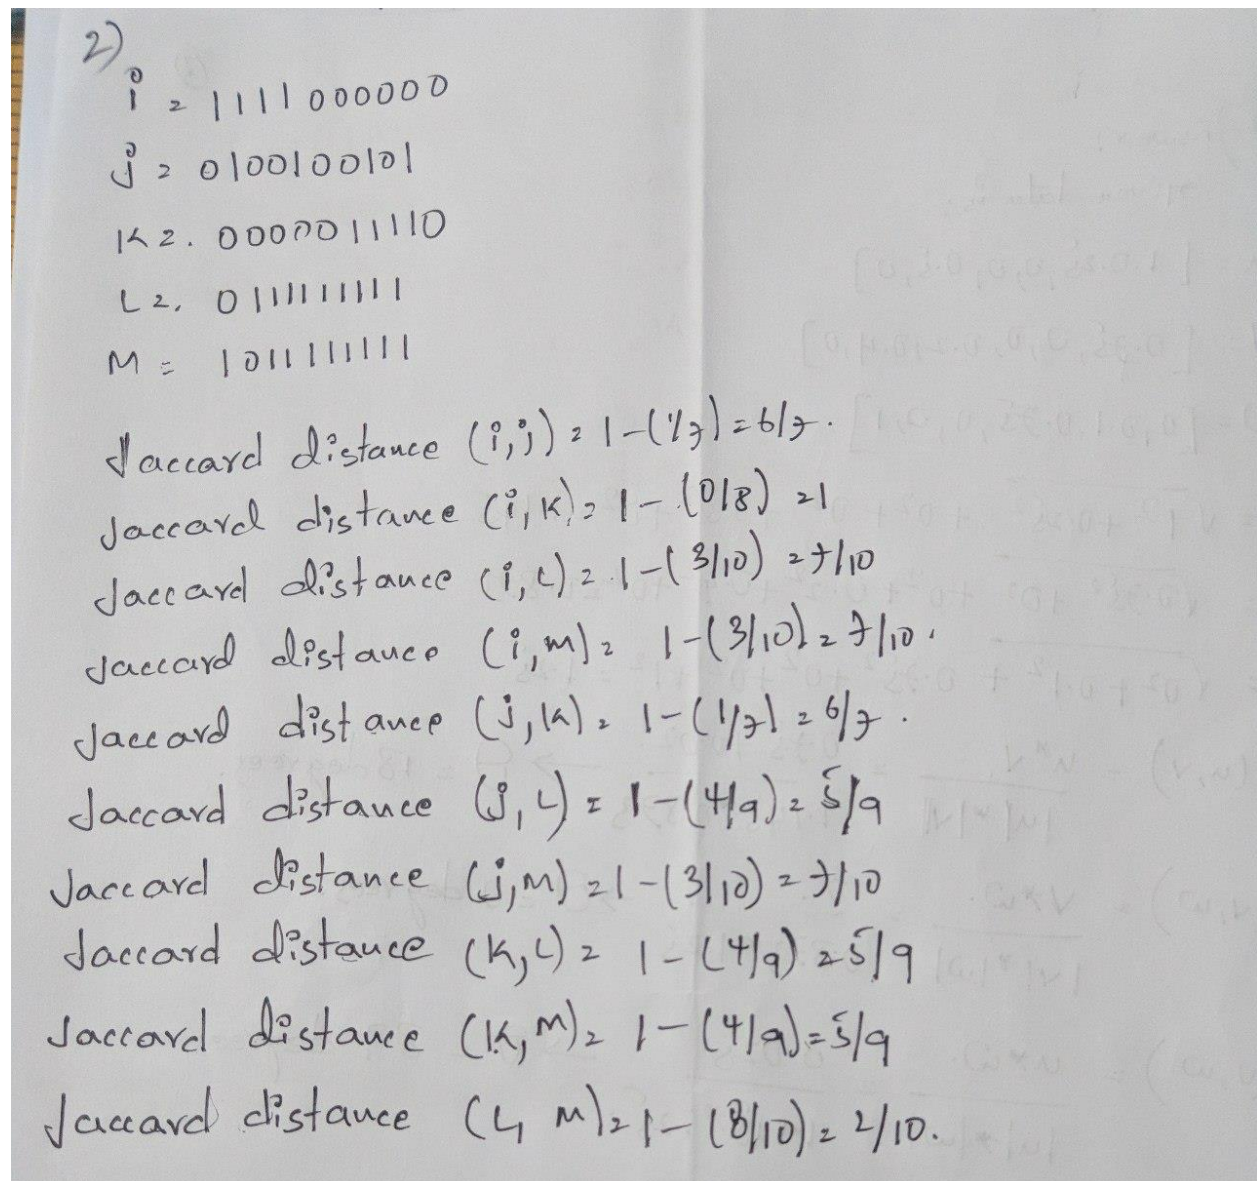 2)
i = 1111000000
j = 0100100101
K = . 0000011110
L = . 0111111111
M = 1011111111
Jaccard distance (i,j) = 1-(1/7) = 6/7.
Jaccard distance (i,K) = 1-(0/8) = 1
Jaccard distance (i,L) = 1-(3/10) = 7/10
Jaccard distance (i,m) = 1-(3/10) = 7/10.
Jaccard distance (j,K) = 1-(1/7) = 6/7.
Jaccard distance (j,L) = 1-(4/9) = 5/9
Jaccard distance (j,M) = 1-(3/10) = 7/10
Jaccard distance (K,L) = 1-(4/9) = 5/9
Jaccard distance (K,M) = 1-(4/9) = 5/9
Jaccard distance (L, M) = 1-(8/10) = 2/10.